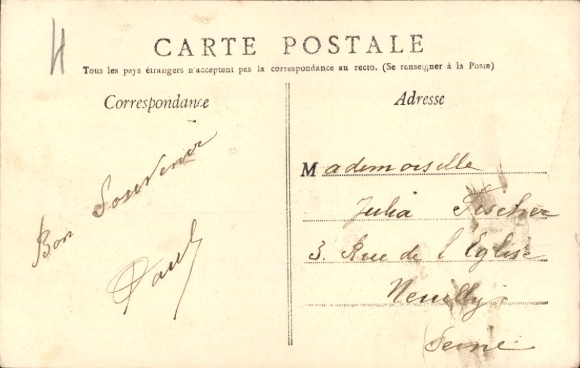 CARTE POSTALE
Tous les pays étrangers n'acceptent pas la correspondance au recto. (Se renseigner à la Poste)
Correspondance
Bon Souvenir
Paul
Adresse
Mademoiselle
Julia Fischer
3, Rue de l'Eglise
Neuilly
Seine